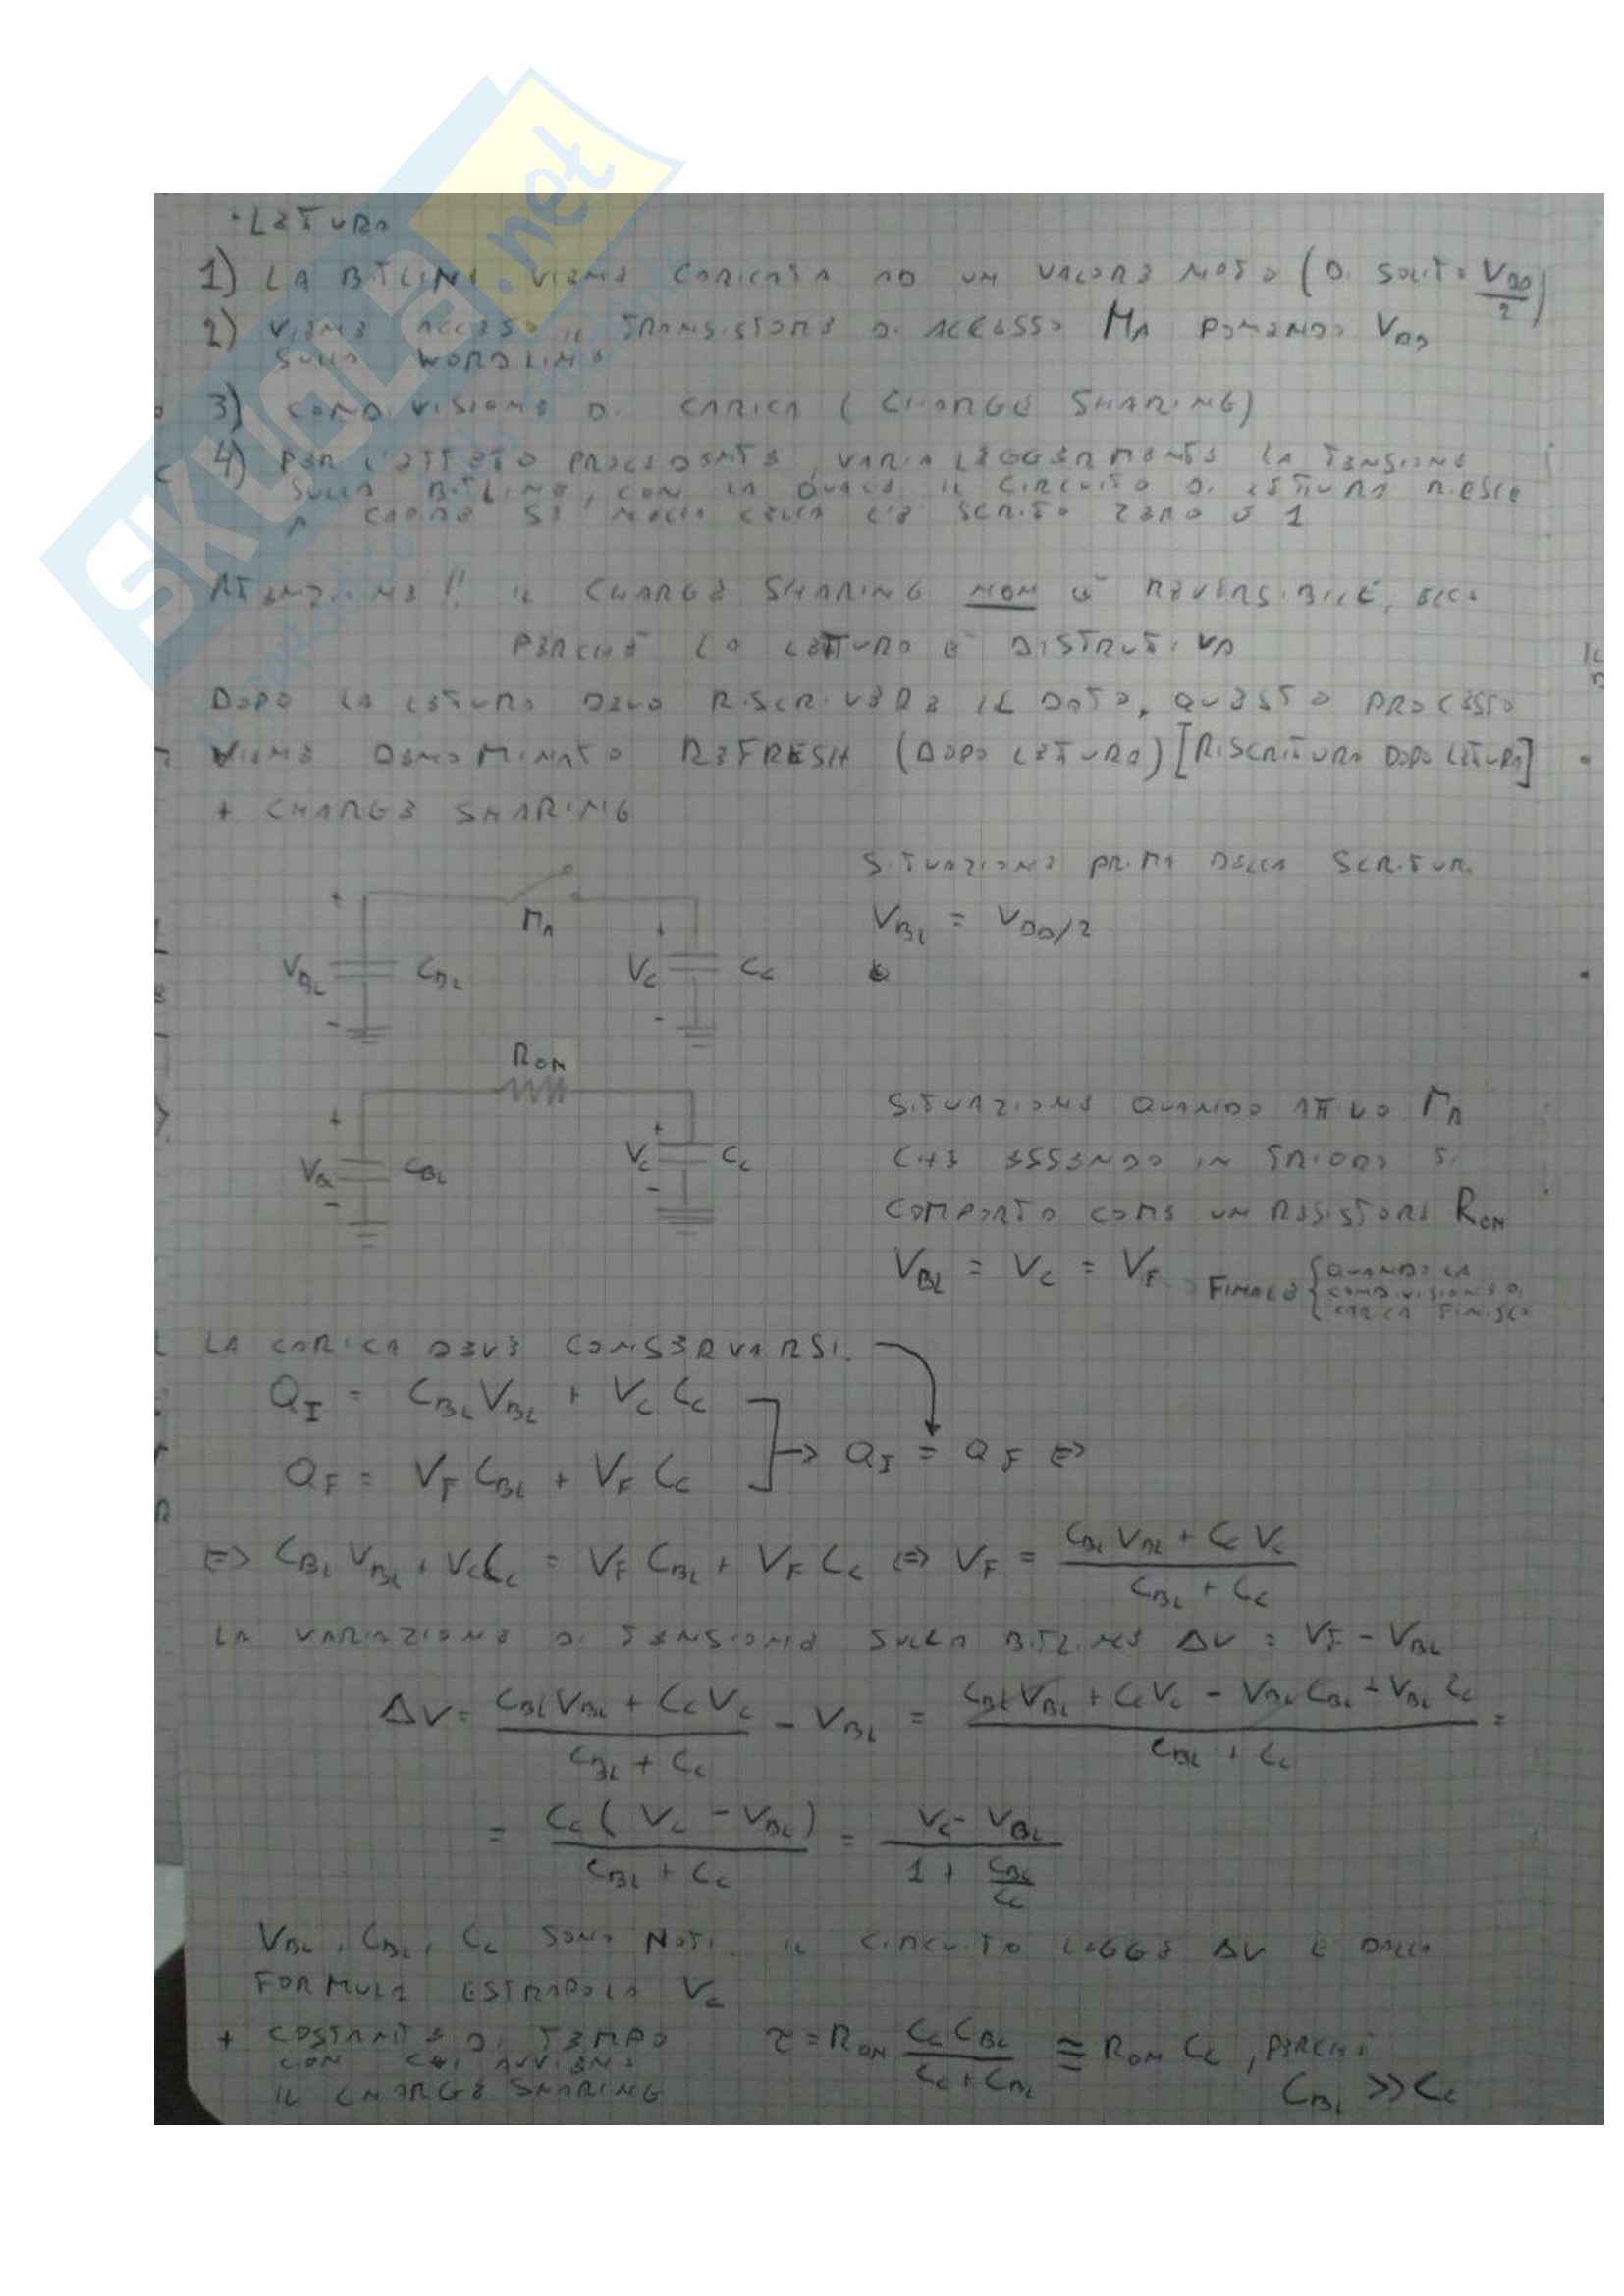 • LETTURA
1) LA BITLINE VIENE CARICATA AD UN VALORE NOTO (DI SOLITO V_DD/2)
2) VIENE ACCESO IL TRANSISTORE DI ACCESSO M_A PONENDO V_DD
SULLA WORDLINE
3) CONDIVISIONE DI CARICA (CHARGE SHARING)
4) PER L'EFFETTO PRECEDENTE, VARIA LEGGERMENTE LA TENSIONE
SULLA BITLINE, CON LA QUALE IL CIRCUITO DI LETTURA RIESCE
A CAPIRE SE NELLA CELLA C'È SCRITTO ZERO O 1
ATTENZIONE!! IL CHARGE SHARING NON È REVERSIBILE, ECCO
PERCHÉ LA LETTURA È DISTRUTTIVA
DOPO LA LETTURA DEVO RISCRIVERE IL DATO, QUESTO PROCESSO
VIENE DENOMINATO REFRESH (DOPO LETTURA) [RISCRITTURA DOPO LETTURA]
+ CHARGE SHARING
SITUAZIONE PRIMA DELLA SCRITTUR.
V_BL = V_DD/2
+ M_A +
V_BL C_BL V_C C_C
- -
R_ON
+ +
V_BL C_BL V_C C_C
- -
SITUAZIONE QUANDO ATTIVO M_A
CHE ESSENDO IN TRIODO SI
COMPORTA COME UN RESISTORE R_ON
V_BL = V_C = V_F → FINALE { QUANDO LA
CONDIVISIONE DI
CARICA FINISCE
LA CARICA DEVE CONSERVARSI.
Q_I = C_BL V_BL + V_C C_C
Q_F = V_F C_BL + V_F C_C → Q_I = Q_F ⇔
⇔ C_BL V_BL + V_C C_C = V_F C_BL + V_F C_C ⇔ V_F = (C_BL V_BL + C_C V_C)/(C_BL + C_C)
LA VARIAZIONE DI TENSIONE SULLA BITLINE ΔV = V_F - V_BL
ΔV = (C_BL V_BL + C_C V_C)/(C_BL + C_C) - V_BL = (C_BL V_BL + C_C V_C - V_BL C_BL + V_BL C_C)/(C_BL + C_C) =
= C_C (V_C - V_BL)/(C_BL + C_C) = (V_C - V_BL)/(1 + C_BL/C_C)
V_BL, C_BL, C_C SONO NOTI. IL CIRCUITO LEGGE ΔV E DALLA
FORMULA ESTRAPOLA V_C
+ COSTANTE DI TEMPO
CON CUI AVVIENE
IL CHARGE SHARING
τ = R_ON (C_C C_BL)/(C_C + C_BL) ≅ R_ON C_C, PERCHÉ
C_BL >> C_C
SKUOLA.net